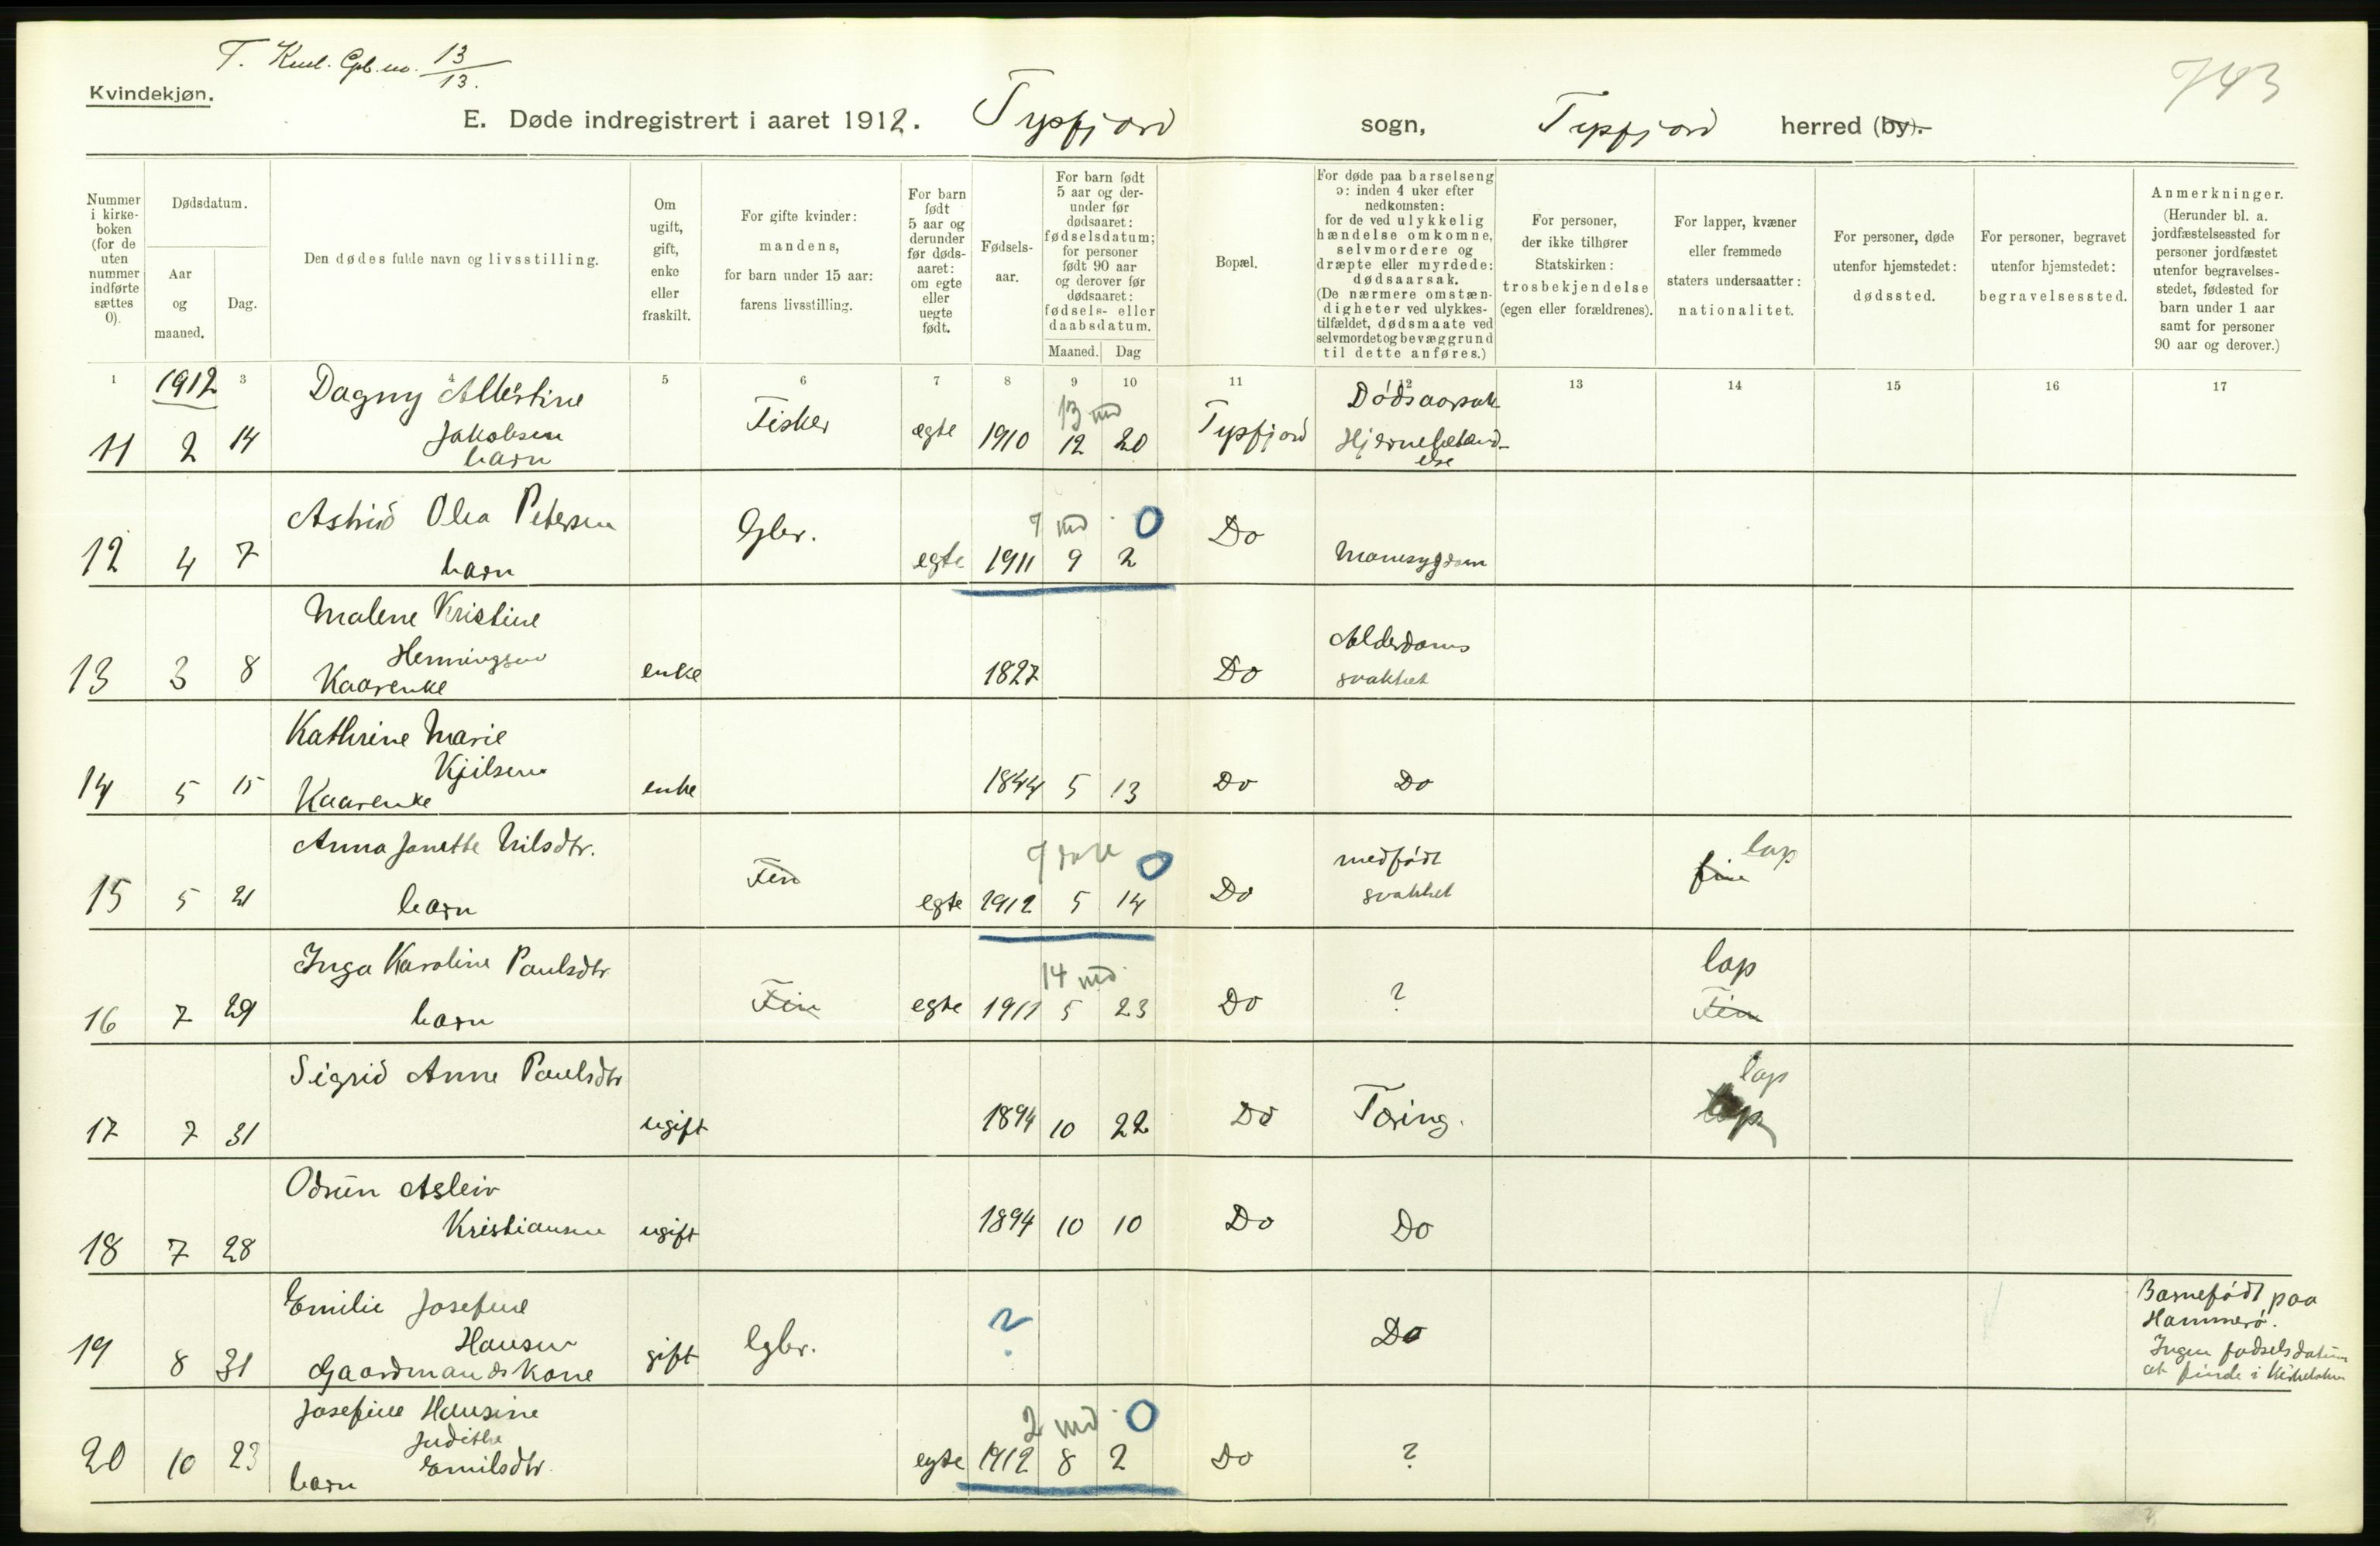 T. Knul. Gpl. no. 13/13.
743
Kvindekjøn.
E. Døde indregistrert i aaret 1912. Tysfjord sogn, Tysfjord herred (by).
Nummer i kirkeboken (for de uten nummer indførte sættes 0).
Dødsdatum.
Aar og maaned.
Dag.
Den dødes fulde navn og livsstilling.
Om ugift, gift, enke eller fraskilt.
For gifte kvinder: mandens, for barn under 15 aar: farens livsstilling.
For barn født 5 aar og derunder før dødsaaret: om egte eller uegte født.
Fødselsaar.
For barn født 5 aar og derunder før dødsaaret: fødselsdatum; for personer født 90 aar og derover før dødsaaret: fødsels- eller daabsdatum.
Maaned. Dag
Bopæl.
For døde paa barselseng ɔ: inden 4 uker efter nedkomsten: for de ved ulykkelig hændelse omkomne, selvmordere og dræpte eller myrdede: dødsaarsak. (De nærmere omstændigheter ved ulykkestilfældet, dødsmaate ved selvmordet og bevæggrund til dette anføres.)
For personer, der ikke tilhører Statskirken: trosbekjendelse (egen eller forældrenes).
For lapper, kvæner eller fremmede staters undersaatter: nationalitet.
For personer, døde utenfor hjemstedet: dødssted.
For personer, begravet utenfor hjemstedet: begravelsessted.
Anmerkninger. (Herunder bl. a. jordfæstelsessted for personer jordfæstet utenfor begravelsesstedet, fødested for barn under 1 aar samt for personer 90 aar og derover.)
1 3 4 5 6 7 8 9 10 11 12 13 14 15 16 17
1912
Dødsaarsak
11 2 14 Dagny Albertine Jakobsen barn Fisker egte 1910 13 md 12 20 Tysfjord Hjernebetændelse
12 4 7 Astrid Olea Petersen barn Gbr. egte 1911 7 md 0 9 2 Do Mavesygdom
13 3 8 Malene Kristine Henningsen Kaarenke enke 1827 Do Alderdoms svakhet
14 5 15 Kathrine Marie Kjilsen Kaarenke enke 1844 5 13 Do Do
15 5 21 Anna Janette Nilsdtr. barn Fin egte 1912 7 dage 0 5 14 Do medfødt svakhet fin lap
16 7 29 Inga Karoline Paulsdtr. barn Fin egte 1911 14 md. 5 23 Do ? lap Fin
17 7 31 Sigrid Anne Paulsdtr ugift 1894 10 22 Do Tæring. lap lap
18 7 28 Odrun Asleiv Kristiansen ugift 1894 10 10 Do Do
19 8 31 Emilie Josefine Hansen Gaardmandskone gift Gbr. ? Do Barnefødt paa Hammerø. Ingen fødselsdatum at finde i Kirkeboken
20 10 23 Josefine Hansine Judithe Emilsdtr. barn egte 1912 2 md. 0 8 2 Do ?